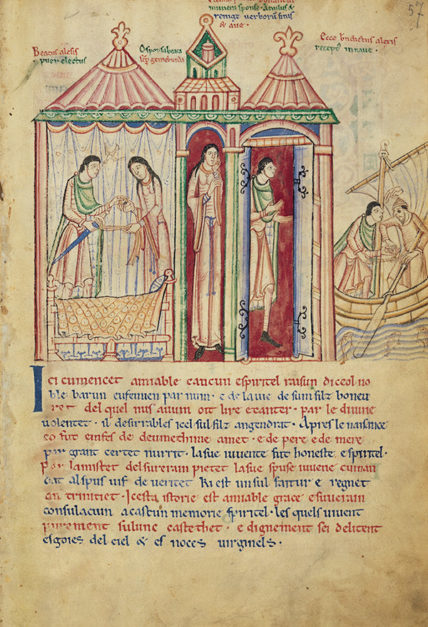 munera sponse. Anulus &
renge verborum finis
& ave.
57
Beatus alexis
puer electus
O sponsa beata
semp gemebunda
Ecce benedictus alexis
recept in nave.
Ici cumencet amiable cancun espiritel raisun diceol no
ble barun eufemien par num . e de la vie de sum filz boneu
ret del quel nus avum oit lire e canter . par le divine
volentet . il desirrables icel sul filz angendrat . Apres le naisance
co fut emfes de deu methime amet . e de pere e de mere
par grant certet nurrit . la sue iuvente fut honeste e spiritel .
Par lamistet del surerain pietet la sue spuse iuvene cuman
dat al spus vif de veritet Ki est un sul faitur e regnet
an trinitiet . Icesta istorie est amiable grace e suverain
consulaciun a cascun memorie spiritel . les quels vivent
purement sulunc castethet . e dignement sei delitent
es goies del ciel & es noces virginels .